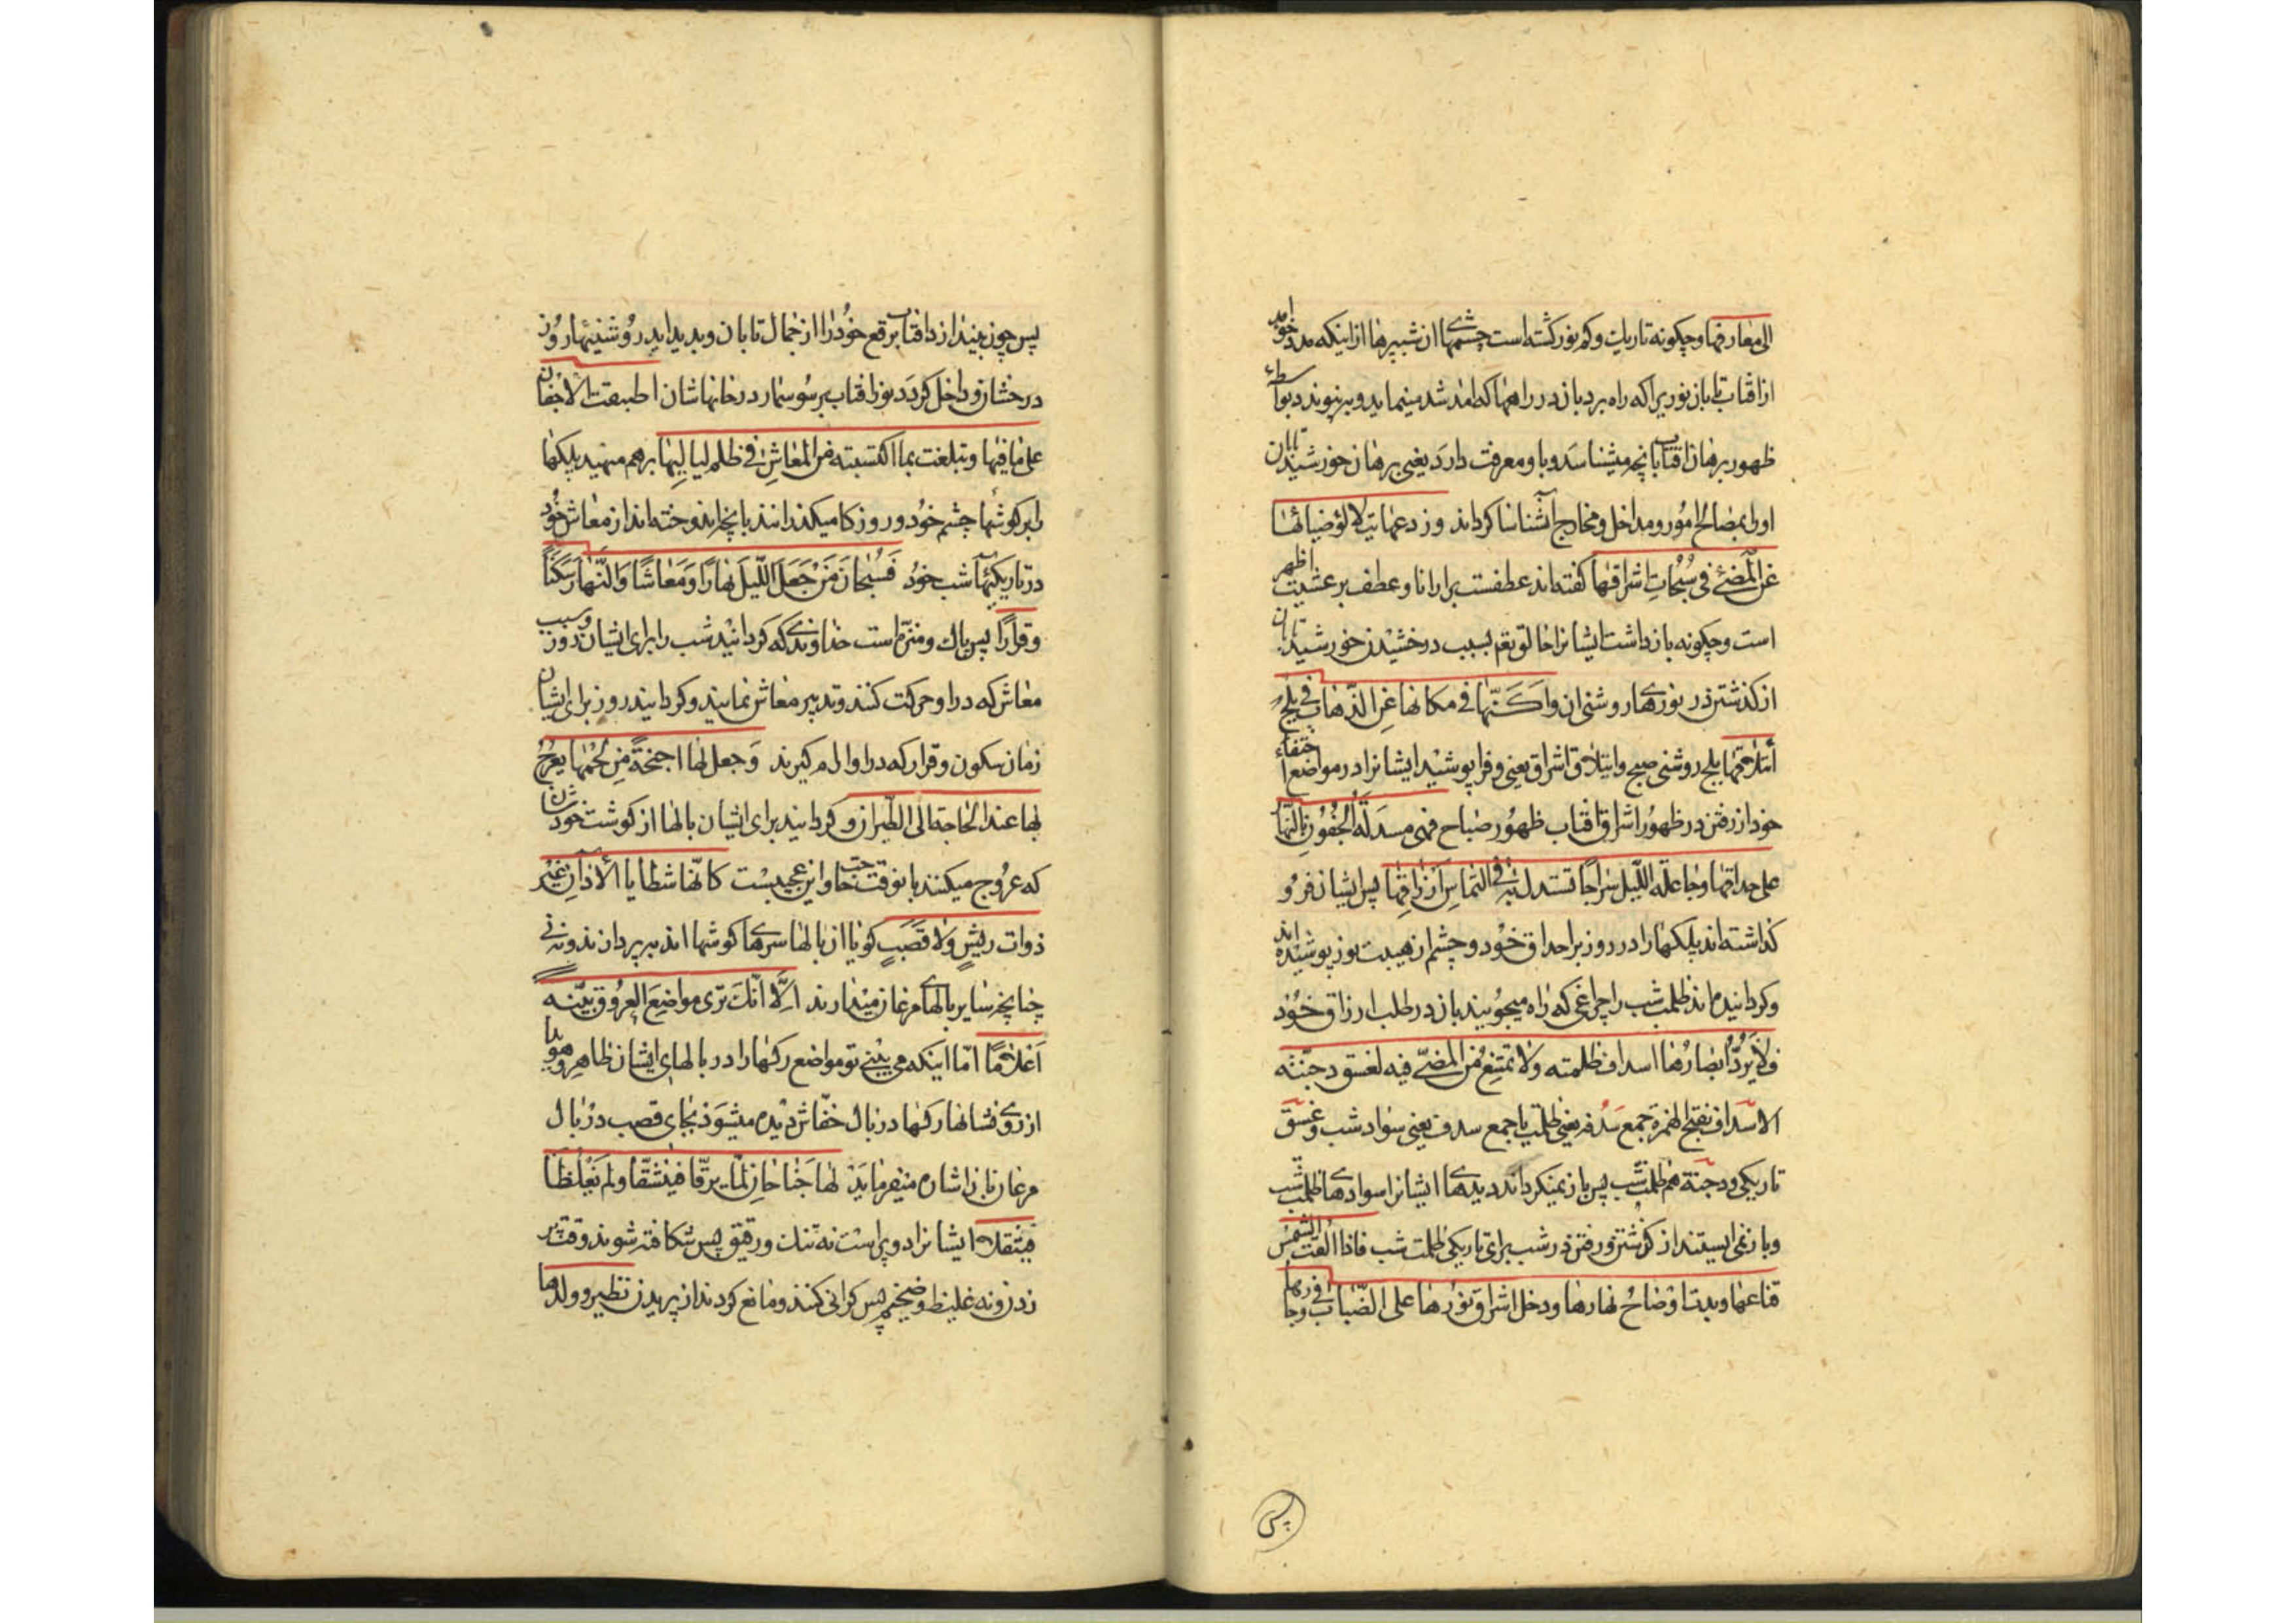 الی معارفها و چکونه تاریك و کم نور کشته است چشمهای شبپرها از اینکه مدد خواهد
از افتاب تابان نوریرا که راه برد بان در راههای که امد شد مینماید و بپیوندد بواسطهٔ
ظهور برهان افتاب بانچه میشناسد و باو معرفت دارد یعنی برهان خورشید تابان
او را بمصالح امور و مداخل و مخارج اشناسا کرداند وردعها بتلألؤ ضیائها
عن المضیّ فی سُبُحاتِ اشراقها کفته اند عطفست بر ارانا و عطف بر عشیت اظهر
است و چکونه بازداشت ایشانرا خالقتعم بسبب درخشیدن خورشید تابان
از کذشتن در نورهای روشنی ان واَکَنّها فی مکانها عن الذّهاب فی بلج
ائتلاقها بلج روشنی صبح و ائتلاق اشراق یعنی و فرا پوشید ایشانرا در مواضع اختفاء
خود از رفتن در ظهور اشراق افتاب ظهور صباح فهی مسدلة الجُفُونِ بالنّهار
علی حداقها و جاعلة اللّیل سِراجًا تستدل به فی التماسِ اَرزاقِها پس ایشان فرو
کذاشته اند پلکهارا در روز بر احداق خود و چشم از هیبت نور پوشیده اند
و کردانیده اند ظلمت شب را چراغی که راه میجویند بان در طلب ارزاق خود
فلا یَرُدُّ ابصارُها اسداف ظلمته ولا تمتنع من المضیّ فیه لغسق دجنّته
الاسداف بفتح الهمزة جمع سُدفه یعنی ظلمت یا جمع سدف یعنی سواد شب و غسق
تاریکی و دجنة هم ظلمت شب پس باز نمیکرداند دیدهای ایشانرا سوادهای ظلمت شب
و باز نمی ایستند از کذشتن و رفتن در شب برای تاریکی ظلمت شب فاذا القت الشّمس
قناعها و بدت اوضاحُ نهارها و دخل اشراق نورها علی الضّباب فی وجارها
پس
پس چون بیندازد افتاب برقع خود را از جمال تابان و پدید اید روشنیهای روز
درخشان و داخل کردد نور افتاب بر سوسمار در خانهاشان اطبقت الاجفان
علی ماقیها و تبلّغت بما اکتسبته من المعاشِ فی ظلم لیالِیها برهم مینهد پلکهارا
برکوشهای چشم خود و روزکار میکذرانند بانچه اندوخته اند از معاش خود
در تاریکیهای شب خود فَسُبْحانَ مَنْ جَعَلَ اللَّیلَ لها نهارًا وَمَعاشًا وَالنَّهارَ سَکَنًا
وقرارًا پس پاك و منزّه است خداوندی که کردانید شب را برای ایشان روز و سبب
معاش که در او حرکت کنند و تدبیر معاش نمایند و کردانید روز برای ایشان
زمان سکون و قرار که در او ارام کیرند وَجعل لها اجنحةً مِن لَحْمِها یعرجُ
بها عند الحاجة الی الطّیران و کردانید برای ایشان بالها از کوشت خودشان
که عروج میکنند بان وقت حاجت و این عجیبست کانّها شظایا الأذان غیر
ذوات ریشٍ ولا قصَبٍ کویا ان بالها سرهای کوشها اند بی پر دارند و نه نی
چنانچه سایر بالهای مرغان میدارند الّا انّكَ تری مواضِعَ العروق بیّنه
اَعْلامًا امّا اینکه می بینی تو مواضع رکهارا در بالهای ایشان ظاهر و هویدا
از روی نشانها رکها در بال خفّاش دیده میشود بجای قصب در بال
مرغان بان اشاره میفرماید لها جَناحان لمّا یرقّا فینشقّا ولم یَغْلُظا
فیثقلا ایشانرا دو پر است نه تنك و رقیق پس شکافته شوند وقت پر
زدن و نه غلیظ و ضخیم پس کرانی کنند و مانع کردند از پریدن تطیر و ولدها